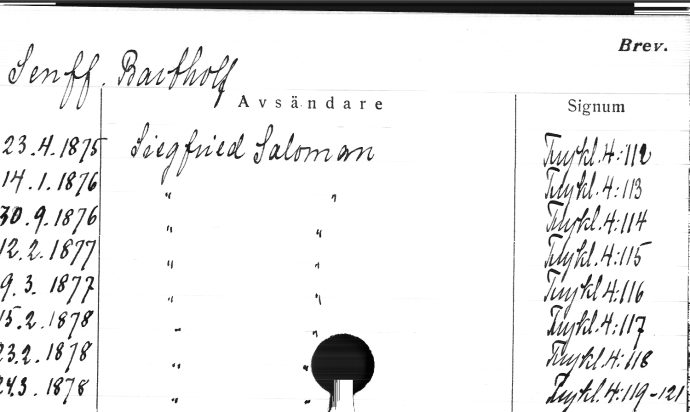 Brev.
Senff. Bartholf
Avsändare Signum
23.4.1875 Siegfried Saloman Trykl.4:112
14.1.1876 " " Trykl.4:113
30.9.1876 " " Trykl.4:114
12.2.1877 " " Trykl.4:115
9.3.1877 " " Trykl.4:116
15.2.1878 " " Trykl.4:117
23.2.1878 " " Trykl.4:118
24.3.1878 " " Trykl.4:119-121